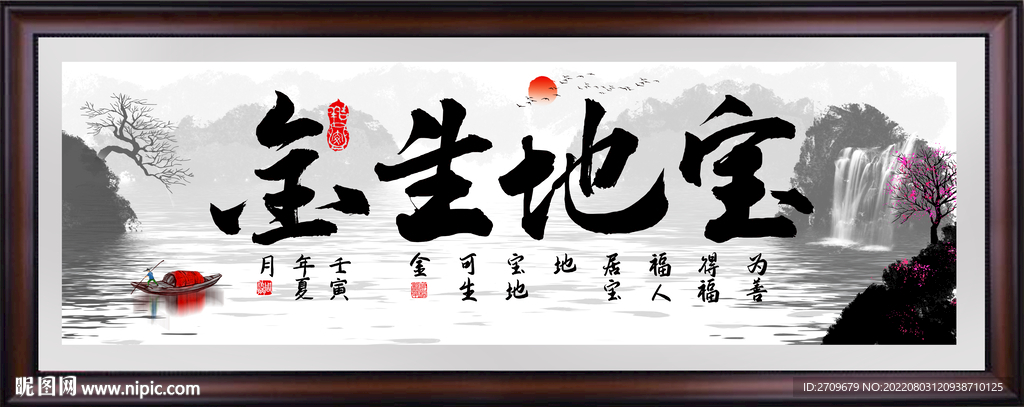 宝地生金
为善
得福
福人
居宝
地
宝地
可生
金
壬寅
年夏
月
昵图网 www.nipic.com
ID:2709679 NO:20220803120938710125